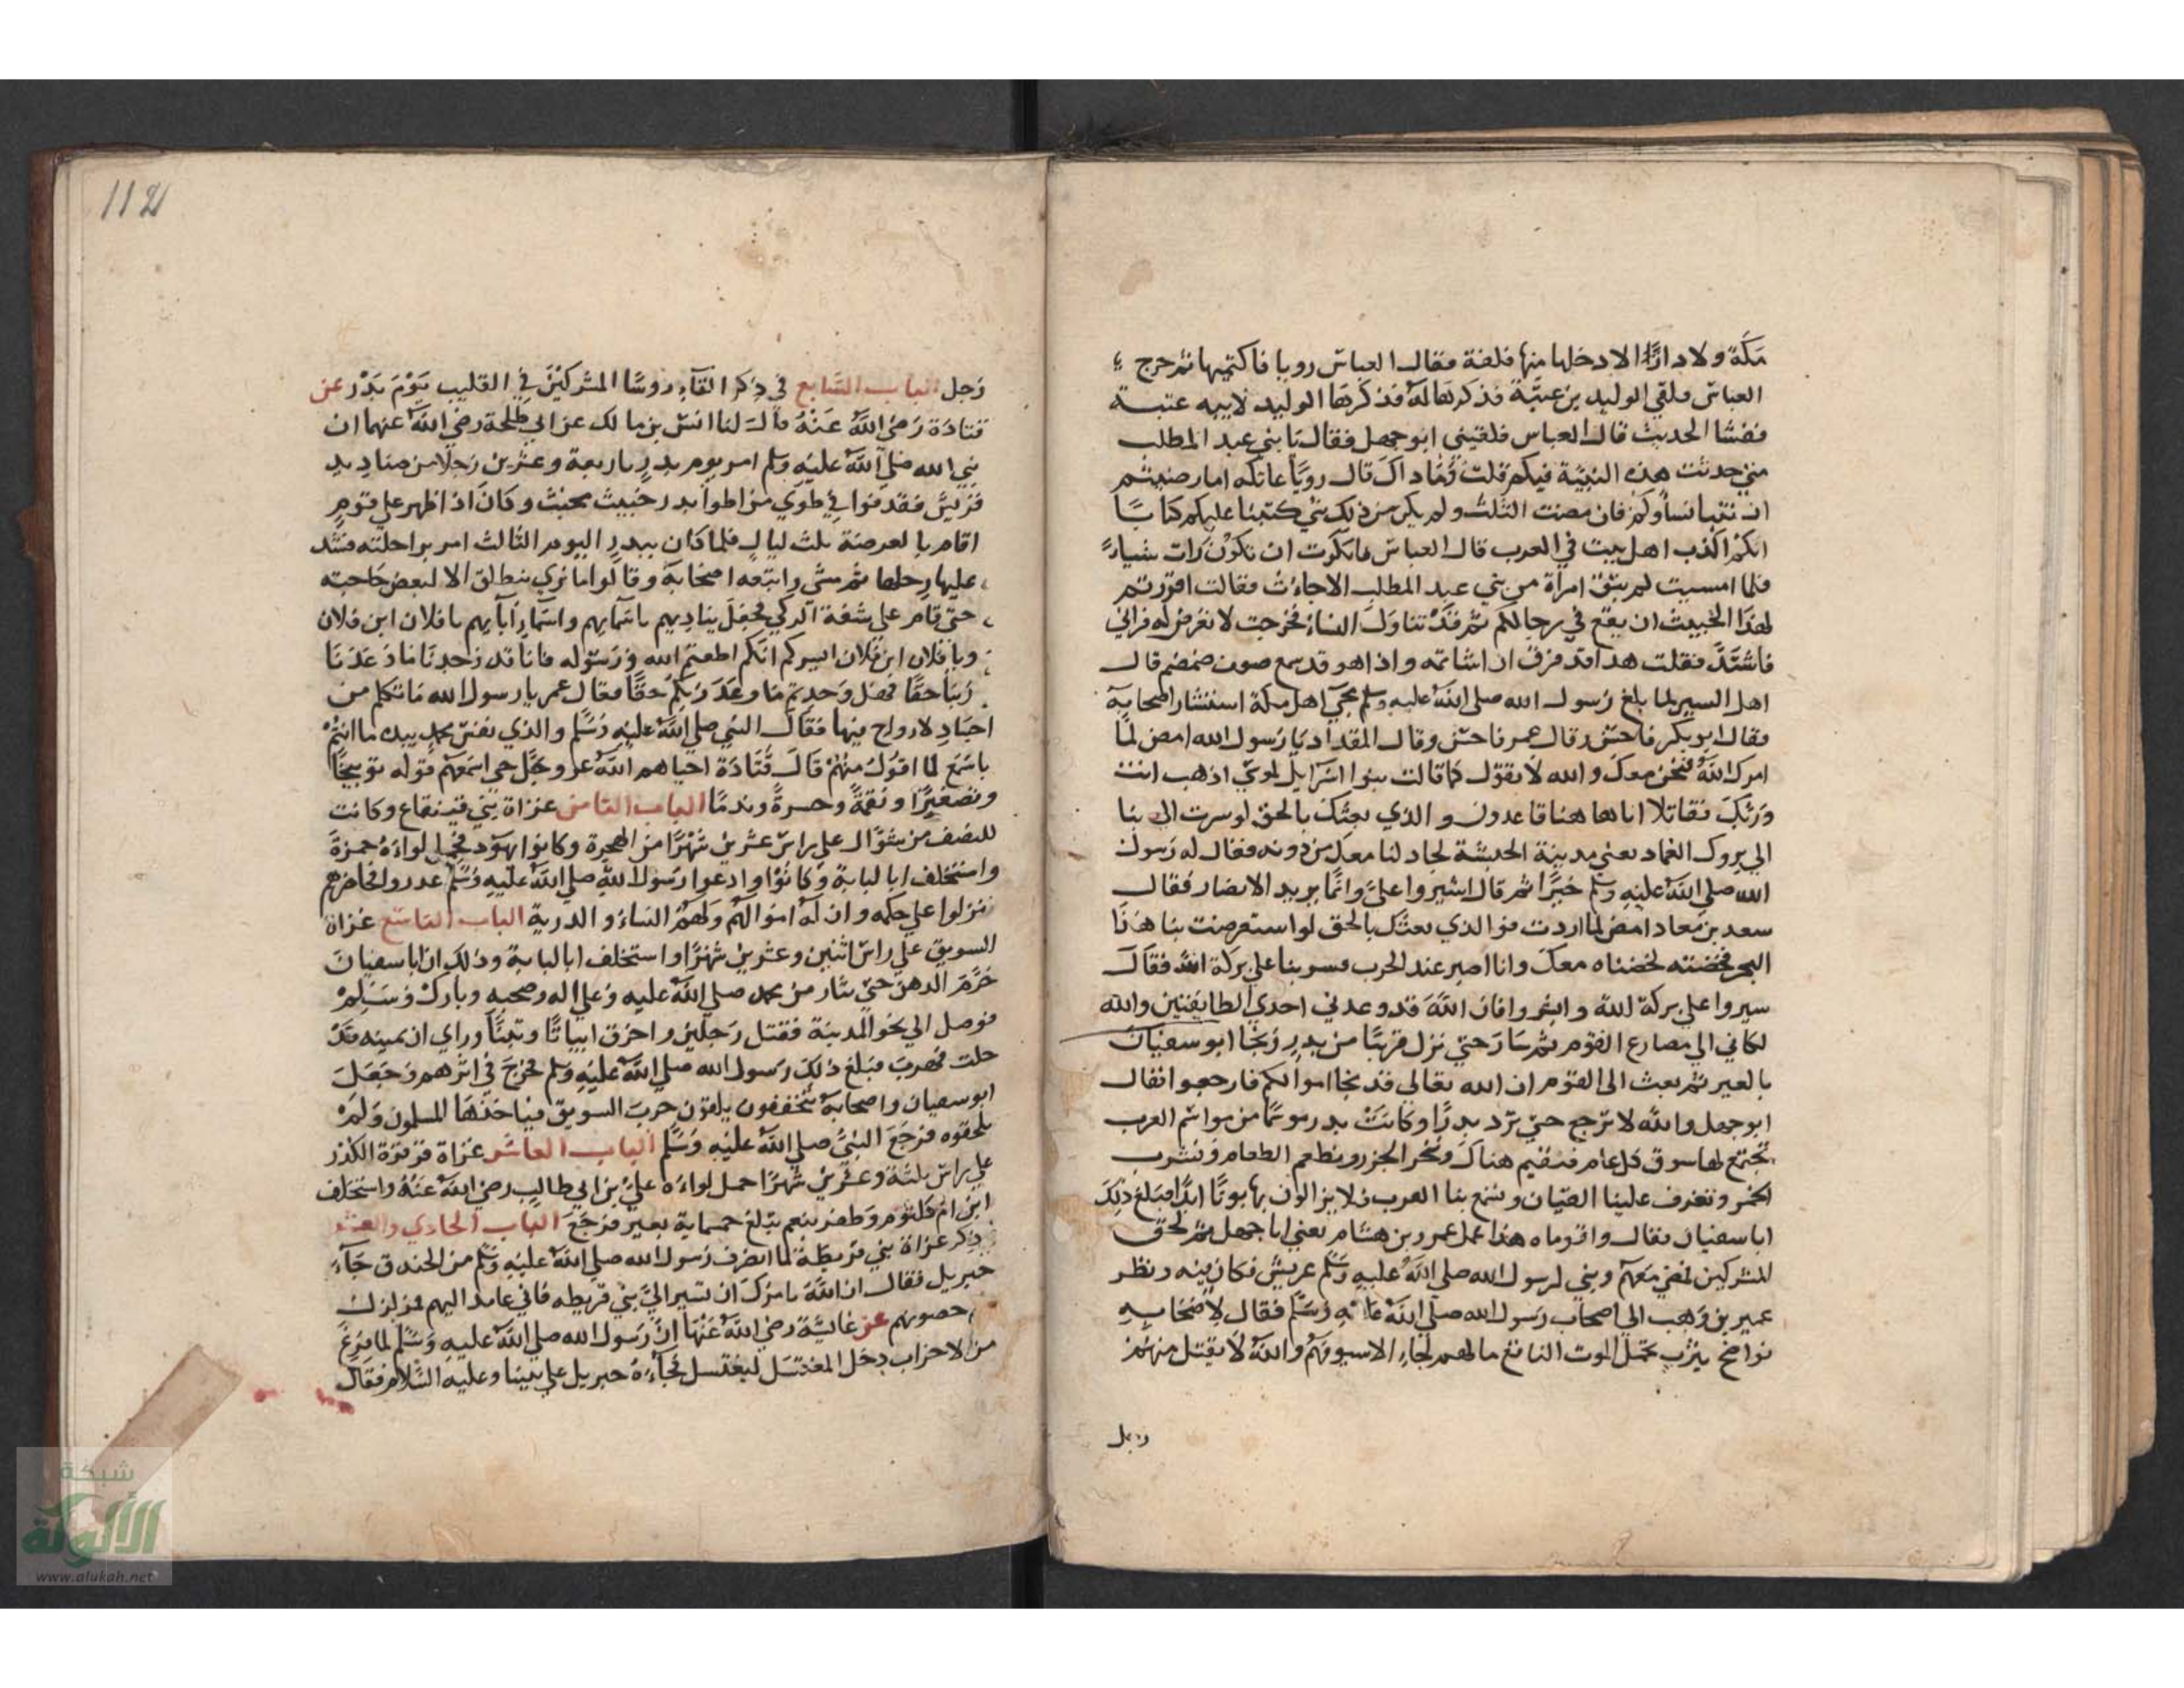 مكة ولا دارًا الا دخلها منها فلقة فقال العباس رويا فاكتميها ثم خرج
العباس فلقي الوليد بن عتبة فذكرها له فذكرها الوليد لابيه عتبة
ففشا الحديث قال العباس فلقيني ابو جهل فقال يا بني عبد المطلب
متي حدثت هذه النبية فيكم قلت وما ذاك قال رويا عاتكه اما رضيتم
ان تنبا نساوكم فان مضت الثلث ولم يكن من ذلك شي كتبنا عليكم كتابا
انكم اكذب اهل بيت في العرب قال العباس فانكرت ان تكون رات شياء
فلما امسيت لم يبق امراة من بني عبد المطلب الا جاءت فقالت اقررتم
لهذا الخبيث ان يقع في رجالكم ثم قد تناول النساء فخرجت لا تعرض له فراني
فاشتد فقلت هذا قد فرق ان اشاتمه واذا هو قد سمع صوت ضمضم قال
اهل السير لما بلغ رسول الله صلي الله عليه وسلم مجي اهل مكة استشار اصحابه
فقال ابو بكر فاحسن وقال عمر فاحسن وقال المقداد يا رسول الله امض لما
امرك الله فنحن معك والله لا نقول كما قالت بنوا اسرايل لموسي اذهب انت
وربك فقاتلا انا هاهنا قاعدون والذي بعثك بالحق لو سرت الي بنا
الي بروك الغماد يعني مدينة الحبشة لجادلنا معك من دونه فقال له رسول
الله صلي الله عليه وسلم خيرا ثم قال اشيروا علي وانما يريد الانصار فقال
سعد بن معاد امض لما اردت فو الذي بعثك بالحق لو استعرضت بنا هذا
البحر فخضته لخضناه معك وانا اصبر عند الحرب فسر بنا علي بركة الله فقال
سيروا علي بركة الله وابشروا فان الله قد وعدني احدي الطايفتين والله
لكاني الي مصارع القوم ثم سار حتي نزل قريبا من بدر ونجا ابو سفيان
بالعير ثم بعث الي القوم ان الله تعالي قد نجا اموالكم فارجعوا فقال
ابو جهل والله لا نرجع حتي نرد بدرا وكانت بدر موسما من مواسم العرب
تجتمع لها سوق كل عام فنقيم هناك وننحر الجزر ونطعم الطعام ونشرب
الخمر وتعزف علينا القيان وتسمع بنا العرب فلا يزالون يهابونا ابدا فبلغ ذلك
ابا سفيان فقال واقوماه هذا عمل عمرو بن هشام يعني ابا جهل ثم لحق
المشركين فمضي معهم وبني لرسول الله صلي الله عليه وسلم عريش فكان فيه ونظر
عمير بن وهب الي اصحاب رسول الله صلي الله عليه وسلم فقال لاصحابه
نواضح يثرب تحمل الموت الناقع ما لهم لجاء الا سيوفهم والله لا يقتل منهم
رجل
112
رجل الباب السابع في ذكر القاء روسا المشركين في القليب يوم بدر عن
قتادة رضي الله عنه قال لنا انس بن مالك عن ابي طلحة رضي الله عنهما ان
نبي الله صلي الله عليه وسلم امر يوم بدر باربعة وعشرين رجلا من صناديد
قريش فقذفوا في طوي من اطوا بدر خبيث مخبث وكان اذا ظهر علي قوم
اقام بالعرصة ثلث ليال فلما كان ببدر اليوم الثالث امر براحلته فشد
عليها رحلها ثم مشي واتبعه اصحابه وقالوا ما نري ينطلق الا لبعض حاجته
حتي قام علي شفة الركي فجعل يناديهم باسمايهم واسماء آبايهم يا فلان ابن فلان
ويا فلان ابن فلان ايسركم انكم اطعتم الله ورسوله فانا قد وجدنا ما وعدنا
ربنا حقا فهل وجدتم ما وعد ربكم حقا فقال عمر يا رسول الله ما تكلم من
اجساد لا رواح فيها فقال النبي صلي الله عليه وسلم والذي نفس محمد بيده ما انتم
باسمع لما اقول منهم قال قتادة احياهم الله عز وجل حتي اسمعهم قوله توبيخا
وتصغيرًا ونقمة وحسرة وندما الباب الثامن غزاة بني قينقاع وكانت
للنصف من شوال علي راس عشرين شهرًا من الهجرة وكانوا يهود فحمل لواءه حمزة
واستخلف ابا لبابة وكانوا وادعوا رسول الله صلي الله عليه وسلم غدروا فحاصرهم
فنزلوا علي حكمه وان له اموالهم ولهم النساء والذرية الباب التاسع غزاة
السويق علي راس اثنين وعشرين شهرًا واستخلف ابا لبابة وذلك ان ابا سفيان
حرم الدهن حتي يثار من محمد صلي الله عليه وعلي اله وصحبه وبارك وسلم
فوصل الي نحو المدينة فقتل رجلين واحرق ابياتا وتبنا وراي ان يمينه قد
حلت فهرب فبلغ ذلك رسول الله صلي الله عليه وسلم فخرج في اثرهم وجعل
ابو سفيان واصحابه يتخففون يلقون جرب السويق فياخذها المسلمون ولم
يلحقوه فرجع النبي صلي الله عليه وسلم الباب العاشر غزاة قرقرة الكدر
علي راس ثلثة وعشرين شهرًا حمل لواءه علي بن ابي طالب رضي الله عنه واستخلف
ابن ام كلثوم وظفر بنعم تبلغ خمساية بعير فرجع الباب الحادي والعشر
ذكر غزاة بني قريظة لما انصرف رسول الله صلي الله عليه وسلم من الخندق جاء
جبريل فقال ان الله يامرك ان تسير الي بني قريظه فاني عامد اليهم لمزلزل
حصونهم عن عايشة رضي الله عنها ان رسول الله صلي الله عليه وسلم لما فرغ
من الاحزاب دخل المغتسل ليغتسل فجاءه جبريل علي نبينا وعليه السلام فقال
شبكة
الألوكة
www.alukah.net